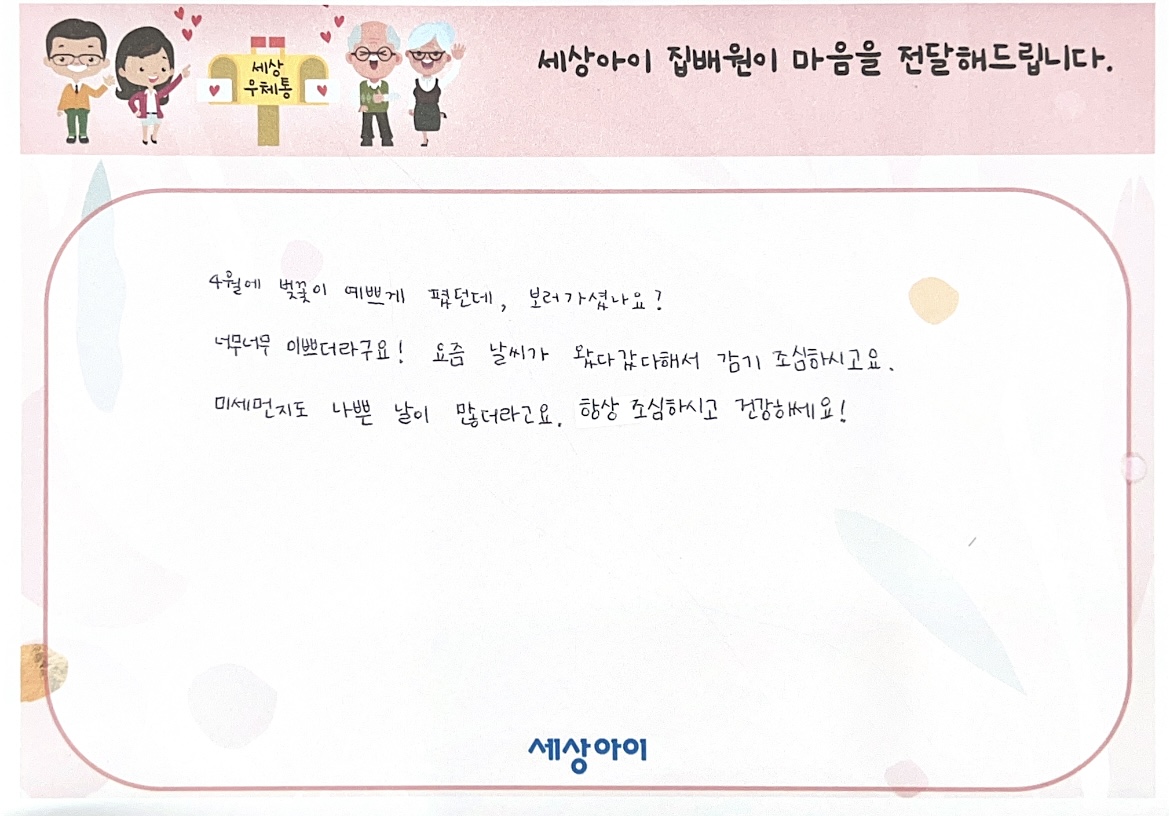 세상아이 집배원이 마음을 전달해드립니다.
세상
우체통
4월에 벚꽃이 예쁘게 폈던데, 보러가셨나요?
너무너무 이쁘더라구요! 요즘 날씨가 왔다갔다해서 감기 조심하시고요.
미세먼지도 나쁜 날이 많더라고요. 항상 조심하시고 건강하세요!
세상아이